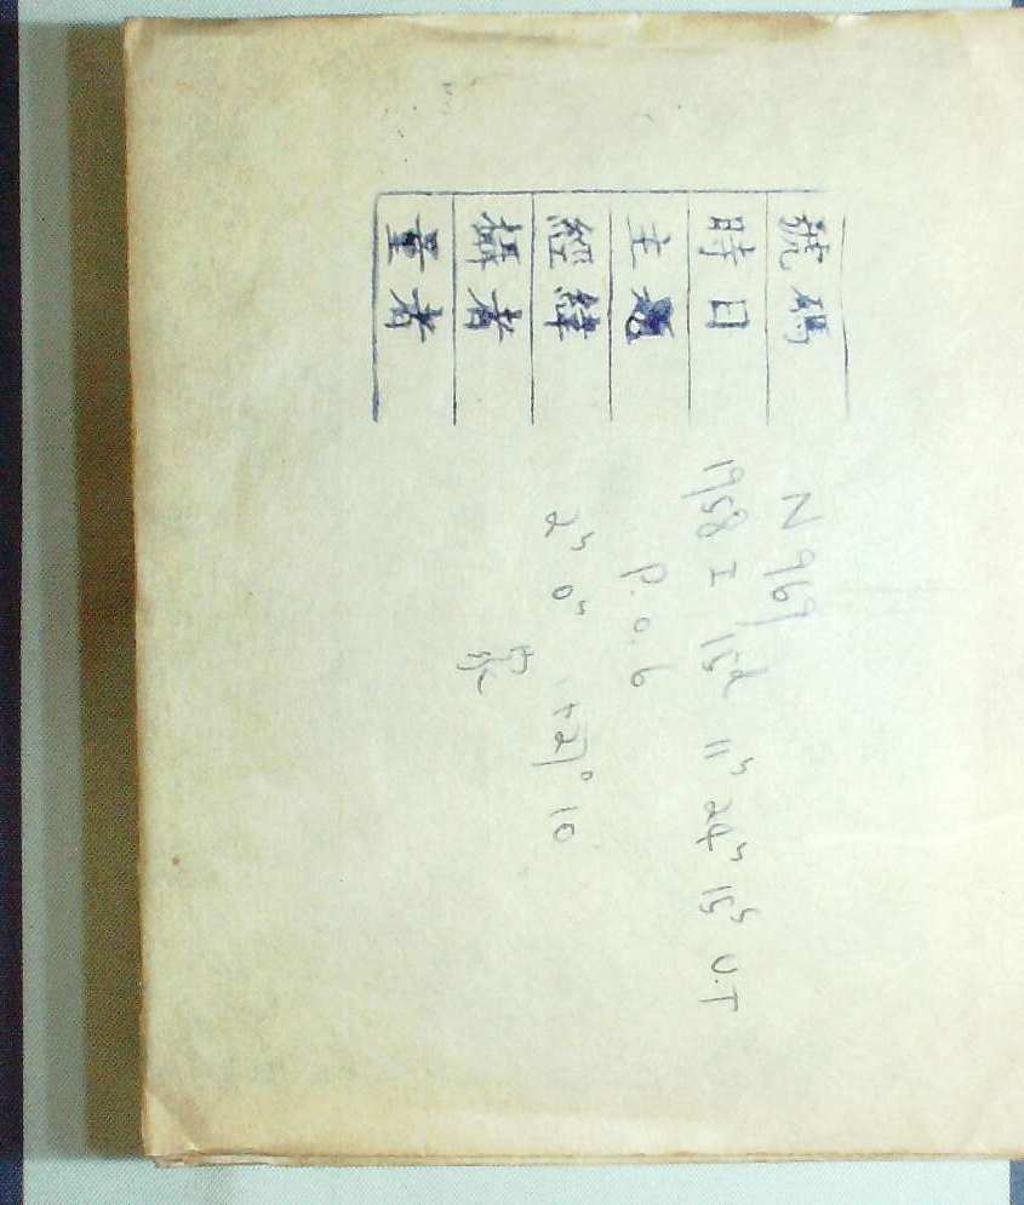 號碼 N 969
時日 1958 I 15d 11h 24m 15s U.T
主 P. 0. 6
經緯 2h 0m +27° 10
攝者
量者